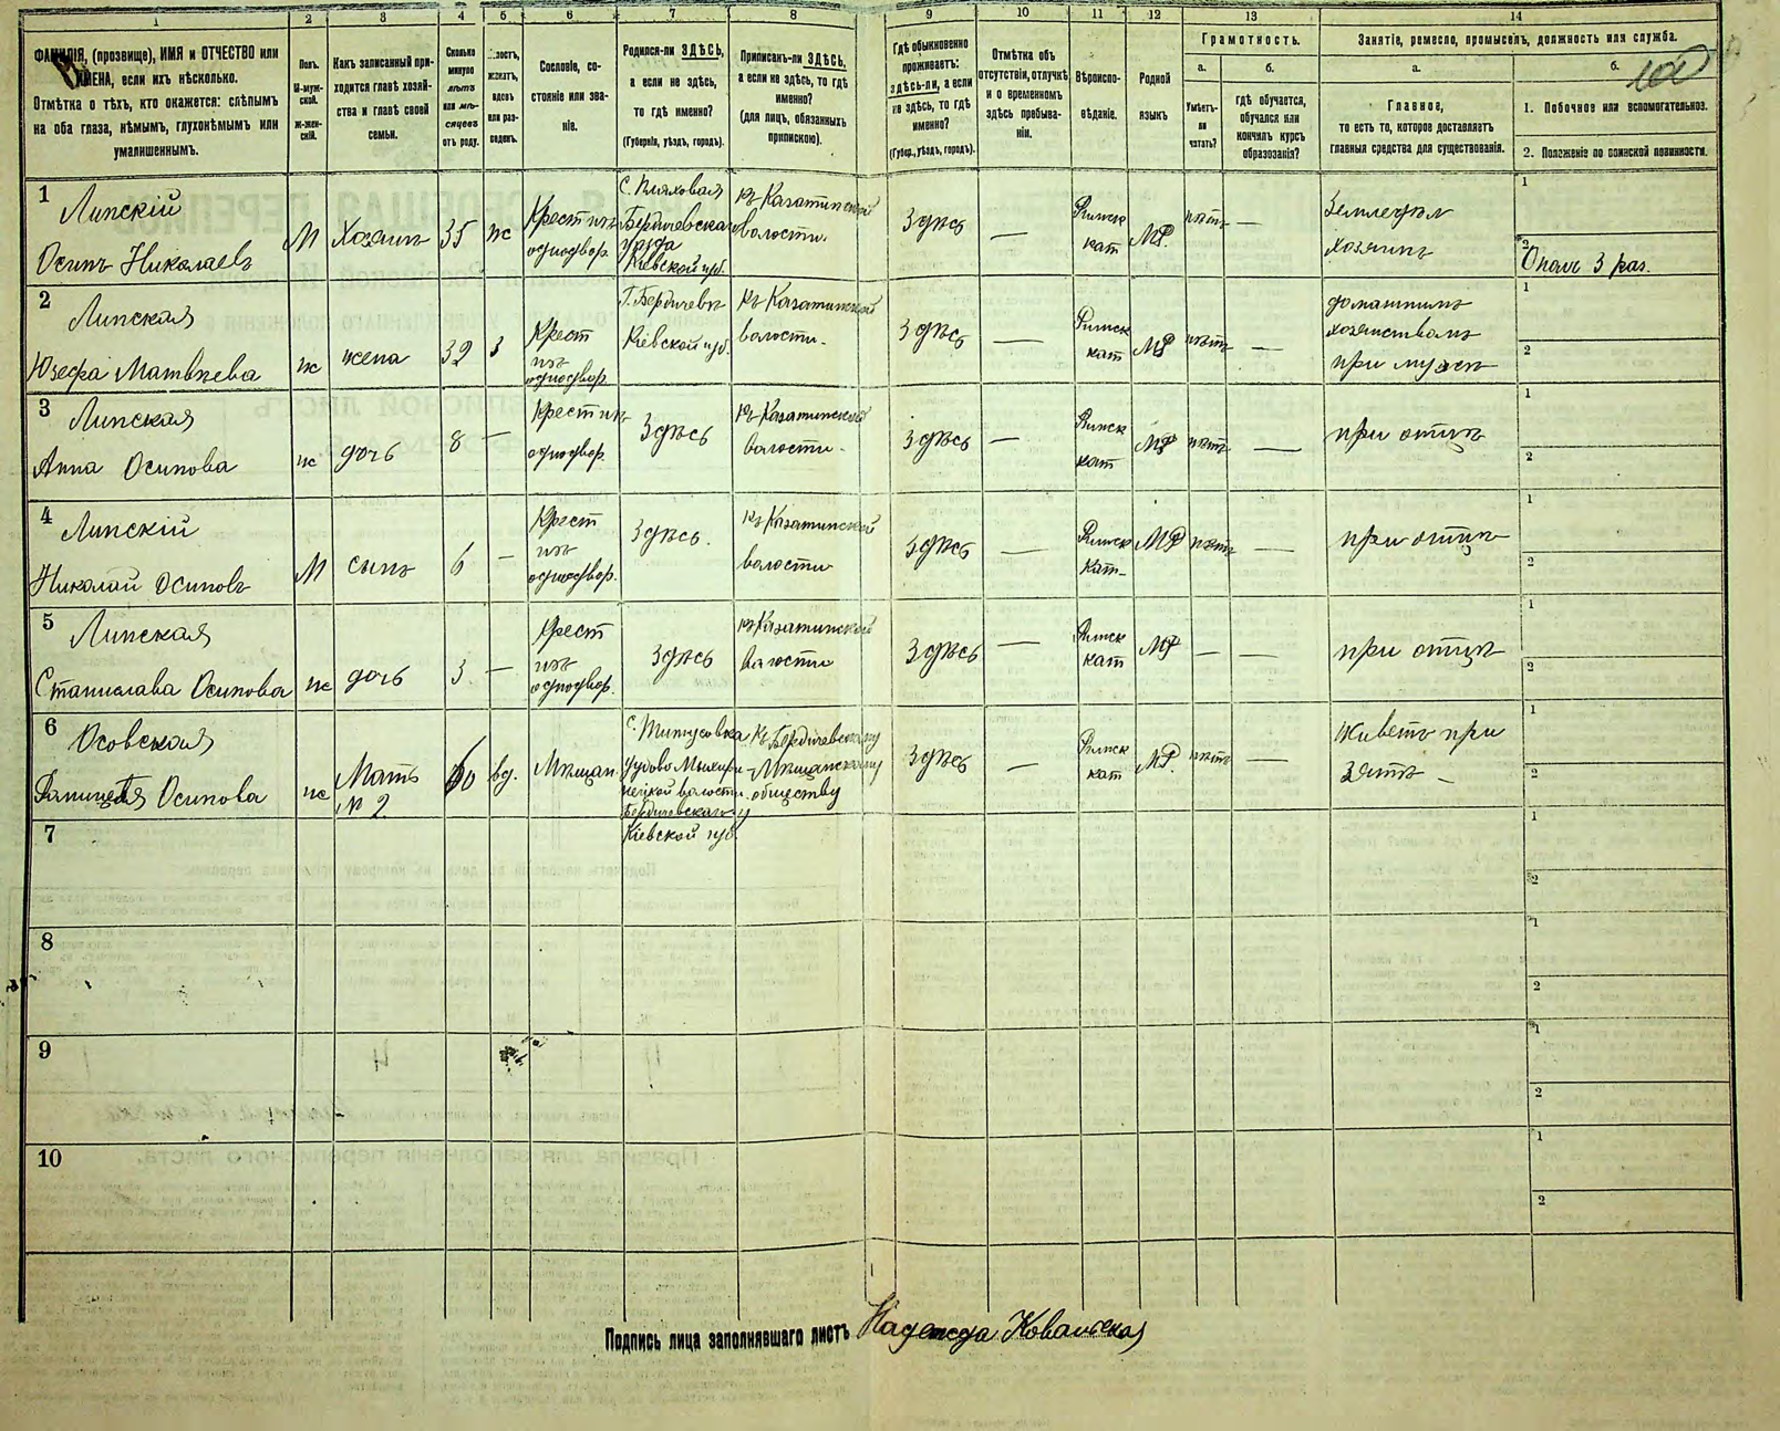 1 2 3 4 5 6 7 8 9 10 11 12 13 14
ФАМИЛІЯ, (прозвище), ИМЯ и ОТЧЕСТВО или
ИМЕНА, если ихъ нѣсколько.
Отмѣтка о тѣхъ, кто окажется: слѣпымъ
на оба глаза, нѣмымъ, глухонѣмымъ или
умалишеннымъ.
Полъ.
М-муж-
ской.
Ж-жен-
скій.
Какъ записанный при-
ходится главѣ хозяй-
ства и главѣ своей
семьи.
Сколько
минуло
лѣтъ
или мѣ-
сяцевъ
отъ роду.
женатъ,
вдовъ
или раз-
веденъ.
Сословіе, со-
стояніе или зва-
ніе.
Родился-ли ЗДѢСЬ,
а если не здѣсь,
то гдѣ именно?
(Губернія, уѣздъ, городъ).
Приписанъ-ли ЗДѢСЬ,
а если не здѣсь, то гдѣ
именно?
(для лицъ, обязанныхъ
припискою).
Гдѣ обыкновенно
проживаетъ:
здѣсь-ли, а если
не здѣсь, то гдѣ
именно?
(Губер., уѣздъ, городъ).
Отмѣтка объ
отсутствіи, отлучкѣ
и о временномъ
здѣсь пребыва-
ніи.
Вѣроиспо-
вѣданіе.
Родной
языкъ
Грамотность.
а.
Умѣетъ-
ли
читать?
б.
гдѣ обучается,
обучался или
кончилъ курсъ
образованія?
Занятіе, ремесло, промыселъ, должность или служба.
а.
Главное,
то есть то, которое доставляетъ
главныя средства для существованія.
б.
1. Побочное или вспомогательное.
2. Положеніе по воинской повинности.
1
Липскій
Осипъ Николаевъ
М
Хозяинъ
35
ж
Крест изъ
однодвор.
Бердичевскаго
уѣзда
Кіевской губ.
къ Казатинской
волости.
Здѣсь
—
Римск
кат
нѣтъ
—
Земледѣл
хозяинъ
1
2
Ополч 3 раз.
2
Липская
Юзефа Матвѣева
ж
жена
32
з
Крест
изъ
однодвор
Г. Бердичевъ
Кіевской губ.
къ Казатинской
волости.
Здѣсь
—
Римск
кат
нѣтъ
—
домашнимъ
хозяйствомъ
при мужѣ
1
2
3
Липская
Анна Осипова
ж
дочь
8
—
Крест изъ
однодвор.
Здѣсь
къ Казатинской
волости.
Здѣсь
—
Римск
кат
нѣтъ
—
при отцѣ
1
2
4
Липскій
Николай Осиповъ
М
сынъ
6
—
Крест
изъ
однодвор.
Здѣсь.
къ Казатинской
волости
Здѣсь
—
Римск
кат.
нѣтъ
—
при отцѣ
1
2
5
Липская
Станислава Осипова
ж
дочь
3
—
Крест
изъ
однодвор.
Здѣсь
къ Казатинской
волости
Здѣсь
—
Римск
кат
—
—
при отцѣ
1
2
6
Осовская
Осипова
ж
Мать
№ 2.
60
вд.
Мѣщан.
волости
Бердичевскаго у
Кіевской губ.
Къ Бердичевскому
Мѣщанскому
обществу
Здѣсь
—
Римск
кат
нѣтъ
—
Живетъ при
зятѣ —
1
2
7
1
2
8
1
2
9
1
2
10
1
2
Подпись лица заполнявшаго листъ Надежда Ковальская